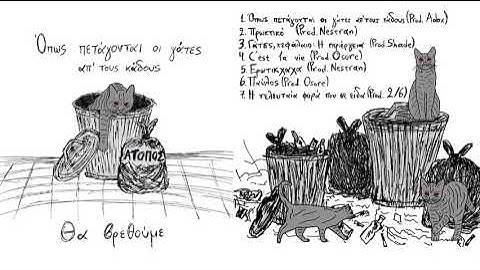 Όπως πετάγονται οι γάτες
απ' τους κάδους
ΑΤΟΠΟΣ
Θα βρεθούμε
1. Όπως πετάγονται οι γάτες απ' τους κάδους (Prod. Adox)
2. Πρωτικό (Prod. Nestran)
3. Γάτες, κεφάλαιο: Η περιέργεια (Prod. Shade)
4. C'est la vie (Prod. Osore)
5. Ερωτικχαχα (Prod. Nestran)
6. Παύλος (Prod. Osore)
7. Η τελευταία φορά που σε είδα (Prod. 2/6)